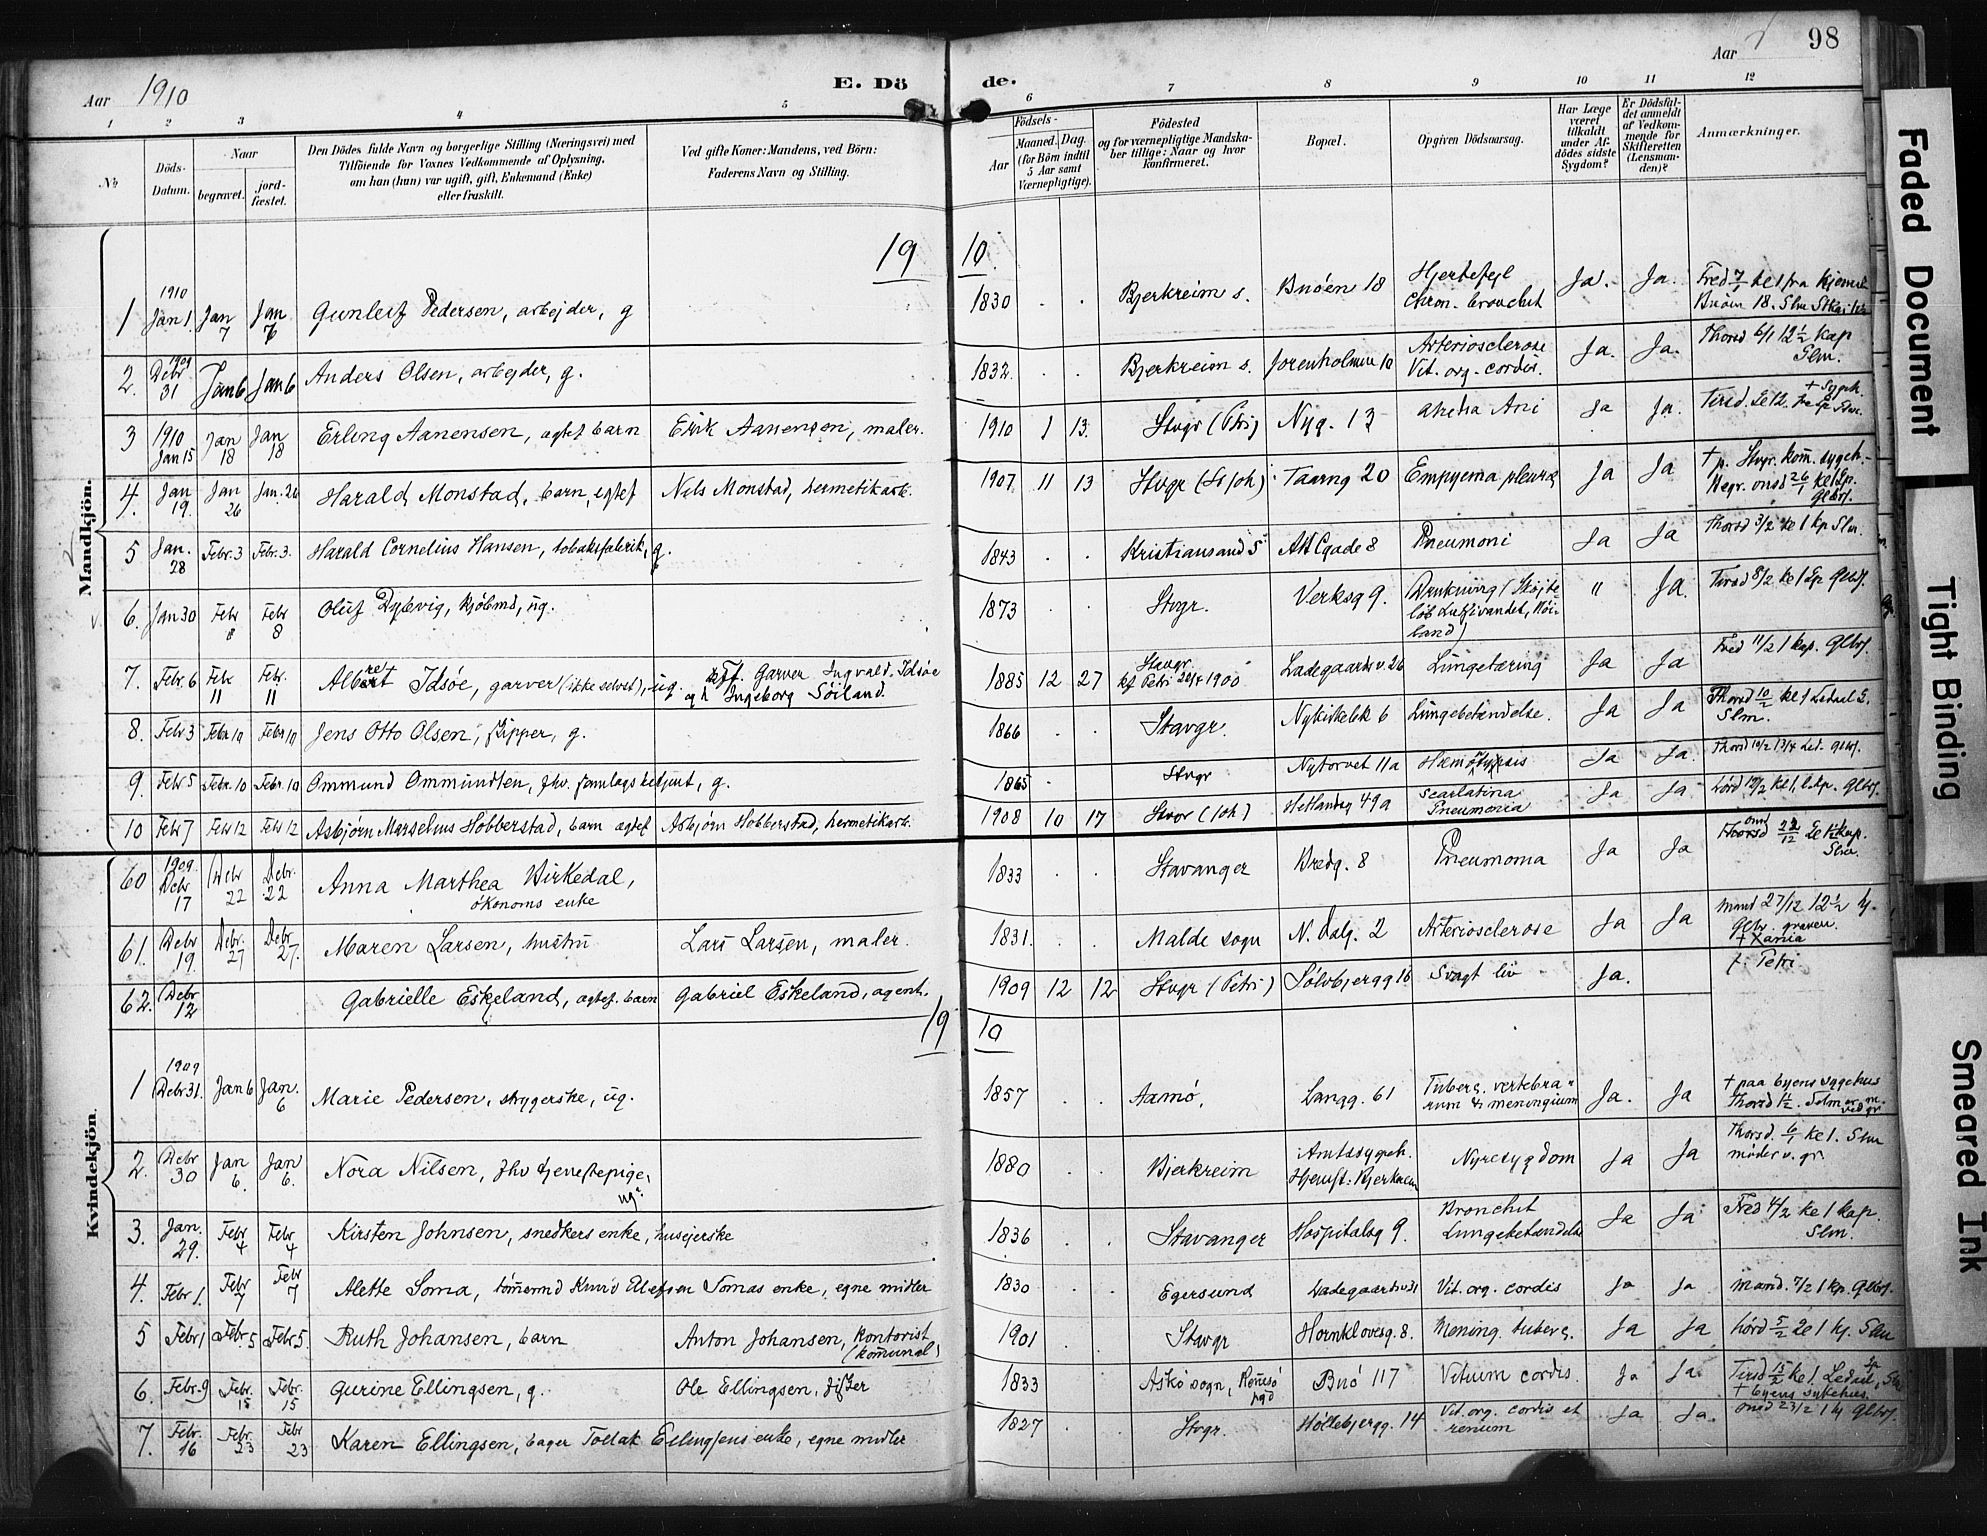 Aar 1910
E. Dö de.
Aar
98
1 2 3 4 5 6 7 8 9 10 11 12
No
Döds-Datum.
Naar
begravet.
jord-fæstet.
Den Dödes fulde Navn og borgerlige Stilling (Næringsvei) med
Tilföiende for Voxnes Vedkommende af Oplysning,
om han (hun) var ugift, gift, Enkemand (Enke)
eller fraskilt.
Ved gifte Koner: Mandens, ved Börn:
Faderens Navn og Stilling.
Födsels-
Aar
Maaned. Dag.
(for Börn indtil
5 Aar samt
Værnepligtige).
Födested
og for værnepligtige Mandska-
ber tillige: Naar og hvor
konfirmeret.
Bopæl.
Opgiven Dödsaarsag.
Har Læge
været
tilkaldt
under Af-
dödes sidste
Sygdom?
Er Dödsfal-
det anmeldt
af Vedkom-
mende for
Skifteretten
(Lensman-
den)?
Anmærkninger.
Mandkjön.
19 10
1 1910 Jan 1 Jan 7 Jan 7 Gunleif Pedersen, arbejder, g 1830 . . Bjerkreim s. Buöen 18 Hjertefejl Chron. bronchit Ja. Ja.
2. 1909 Debr 31 Jan 6 Jan 6 Anders Olsen, arbejder, g. 1832. . . Bjerkreim s. Jorenholmen 10 Arteriosclerose Vit. org. cordis. Ja. Ja. Thorsd 6/1 12½ kap Slm.
3 1910 Jan 15 Jan 18 Jan 18 Erling Aanensen, ægtef barn Erik Aanensen, maler. 1910 1 13. Stvgr (Petri) Nyg. 13 Atresia Ani Ja Ja.
4. Jan 19. Jan 26 Jan. 26 Harald Monstad, barn, egtef Nils Monstad, hermetikarb. 1907 11 13 Stvgr (St Joh) Taarng 20 Empyema pleuræ Ja Ja
5 Jan. 28 Febr. 3 Febr. 3. Harald Cornelius Hansen, tobaksfabrik, g. 1843 . . Kristiansand S. Pneumoni Ja Ja Thorsd 3/2 ke 1 kp Slm.
6. Jan 30 Febr 8 Febr 8 Oluf Dybvig, kjöbmd, ug. 1873 . . Stvgr. Verksg 9. Drukning " Ja. Tirsd 8/2 ke 1 Glbrf.
7. Febr. 6 Febr 11 Febr. 11 Albret Idsöe, garver (ikke selvst), ug. Garver Ingvald Idsöe og h Ingeborg Söiland. 1885 12 27 Stavgr. kf Petri 1900 Ladegaardsv. 26 Lungetæring Ja Ja Fred 11/2 1 kap. Glbrf.
8. Febr 3 Febr 10 Febr 10 Jens Otto Olsen, skipper, g. 1866 Stavgr. Nykirkebk 6 Lungebetændelse. Ja Ja Thorsd 10/2 ke 1 Ledaal Slm.
9. Febr 5 Febr. 10 Febr. 10 Ommund Ommundsen, fhv. samlagsbetjent, g. 1865 . Stvgr Nytorvet 11a Hæmoptysis Ja Ja.
10 Febr 7 Febr 12 Febr 12 Asbjörn Marselius Hobberstad, barn ægtef Asbjörn Hobberstad, hermetikarb. 1908 10 17 Stvgr (Joh) Hetlandsg 49a Scarlatina Pneumonia Ja Ja
Kvindekjön.
60 1909 Debr 17 Debr 22 Debr. 22 Anna Marthea Birkedal, ökonoms enke 1833 . . Stavanger Bredg. 8 Pneumonia Ja Ja
61. Debr 19. Debr. 27 Debr. 27. Maren Larsen, hustru Lars Larsen, maler. 1831. . . Malde sogn N. Dalg. 2 Arteriosclerose Ja Ja
62. Debr 12 Gabrielle Eskeland, ægtef. barn Gabriel Eskeland, agent. 1909 12 12 Stvgr (Petri) Sölvbjergg 16 Svagt liv Ja. Petri
19 10
1 1909 Debr 31. Jan 6 Jan. 6 Marie Pedersen, strygerske, ug. 1857 . . Aamö, Langg. 61 Tuberc. vertebra- rum & meningium Ja. Ja + paa byens sygehus
2. Debr 30 Jan 6. Jan 6. Nora Nilsen, fhv tjenestepige, ug. 1880 . . Bjerkreim Amtssygeh. Hjemst: Bjerkreim Nyresygdom Ja Ja Thorsd. 6/1 ke 1. Slm möder v. gr.
3. Jan. 29. Febr 4 Febr 4 Kirsten Johnsen, snedkers enke, husejerske 1836 . . Stavanger Hospitalsg 9. Bronchit Lungebetændelse Ja Ja Fred 4/2 ke 1 kap. Slm.
4. Febr 1. Febr 7 Febr 7 Alette Soma, tömermd Knud Somas enke, egne midler 1830 . . Egersund Ladegaardsv 31 Vit. org. cordis Ja Ja Mand. 7/2 1 kp. Glbrf.
5 Febr 1 Febr. 5 Febr 5. Ruth Johansen, barn Anton Johansen, kontorist (kommunal) 1901 . . Stavgr Hornklovesg. 8. Mening. tuberc. Ja Ja
6. Febr. 9 Febr. 15 Febr. 15 Gurine Ellingsen, g. Ole Ellingsen, fisker 1833 Askö sogn, Buö 117 Vitium cordis. Ja Ja.
7. Febr. 16 Febr. 23 Febr 23 Karen Ellingsen, bager Tollak Ellingsens enke, egne midler 1827 . Stvgr. Holebjergg. 14 Vit. org. cordis et renum Ja Ja.
Faded Document
Tight Binding
Smeared Ink